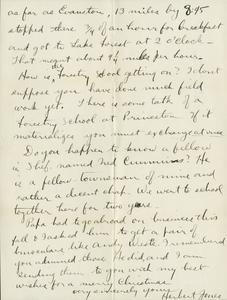 as far as Evanston, 13 miles by 8:45
stopped there 3/4 of an hour for breakfast
and got to Lake Forest at 2 o'clock—
That meant about 9 1/4 miles per hour.
How is forestry school getting on? I don't
suppose you have done much field
work yet. There is some talk of a
forestry School at Princeton. If it
materializes you must exchange at once
Do you happen to know a fellow
in Shef. named Ned Cummins? He
is a fellow townsman of mine and
rather a decent chap. We went to school
together here for two years.
Papa had to go abroad on business this
fall & I asked him to get a pair of
binoculars like Andy West's. I remembered
you admired those he did, and I am
sending them to you with my best
wishes for a merry Christmas
very sincerely yours,
Herbert Jones